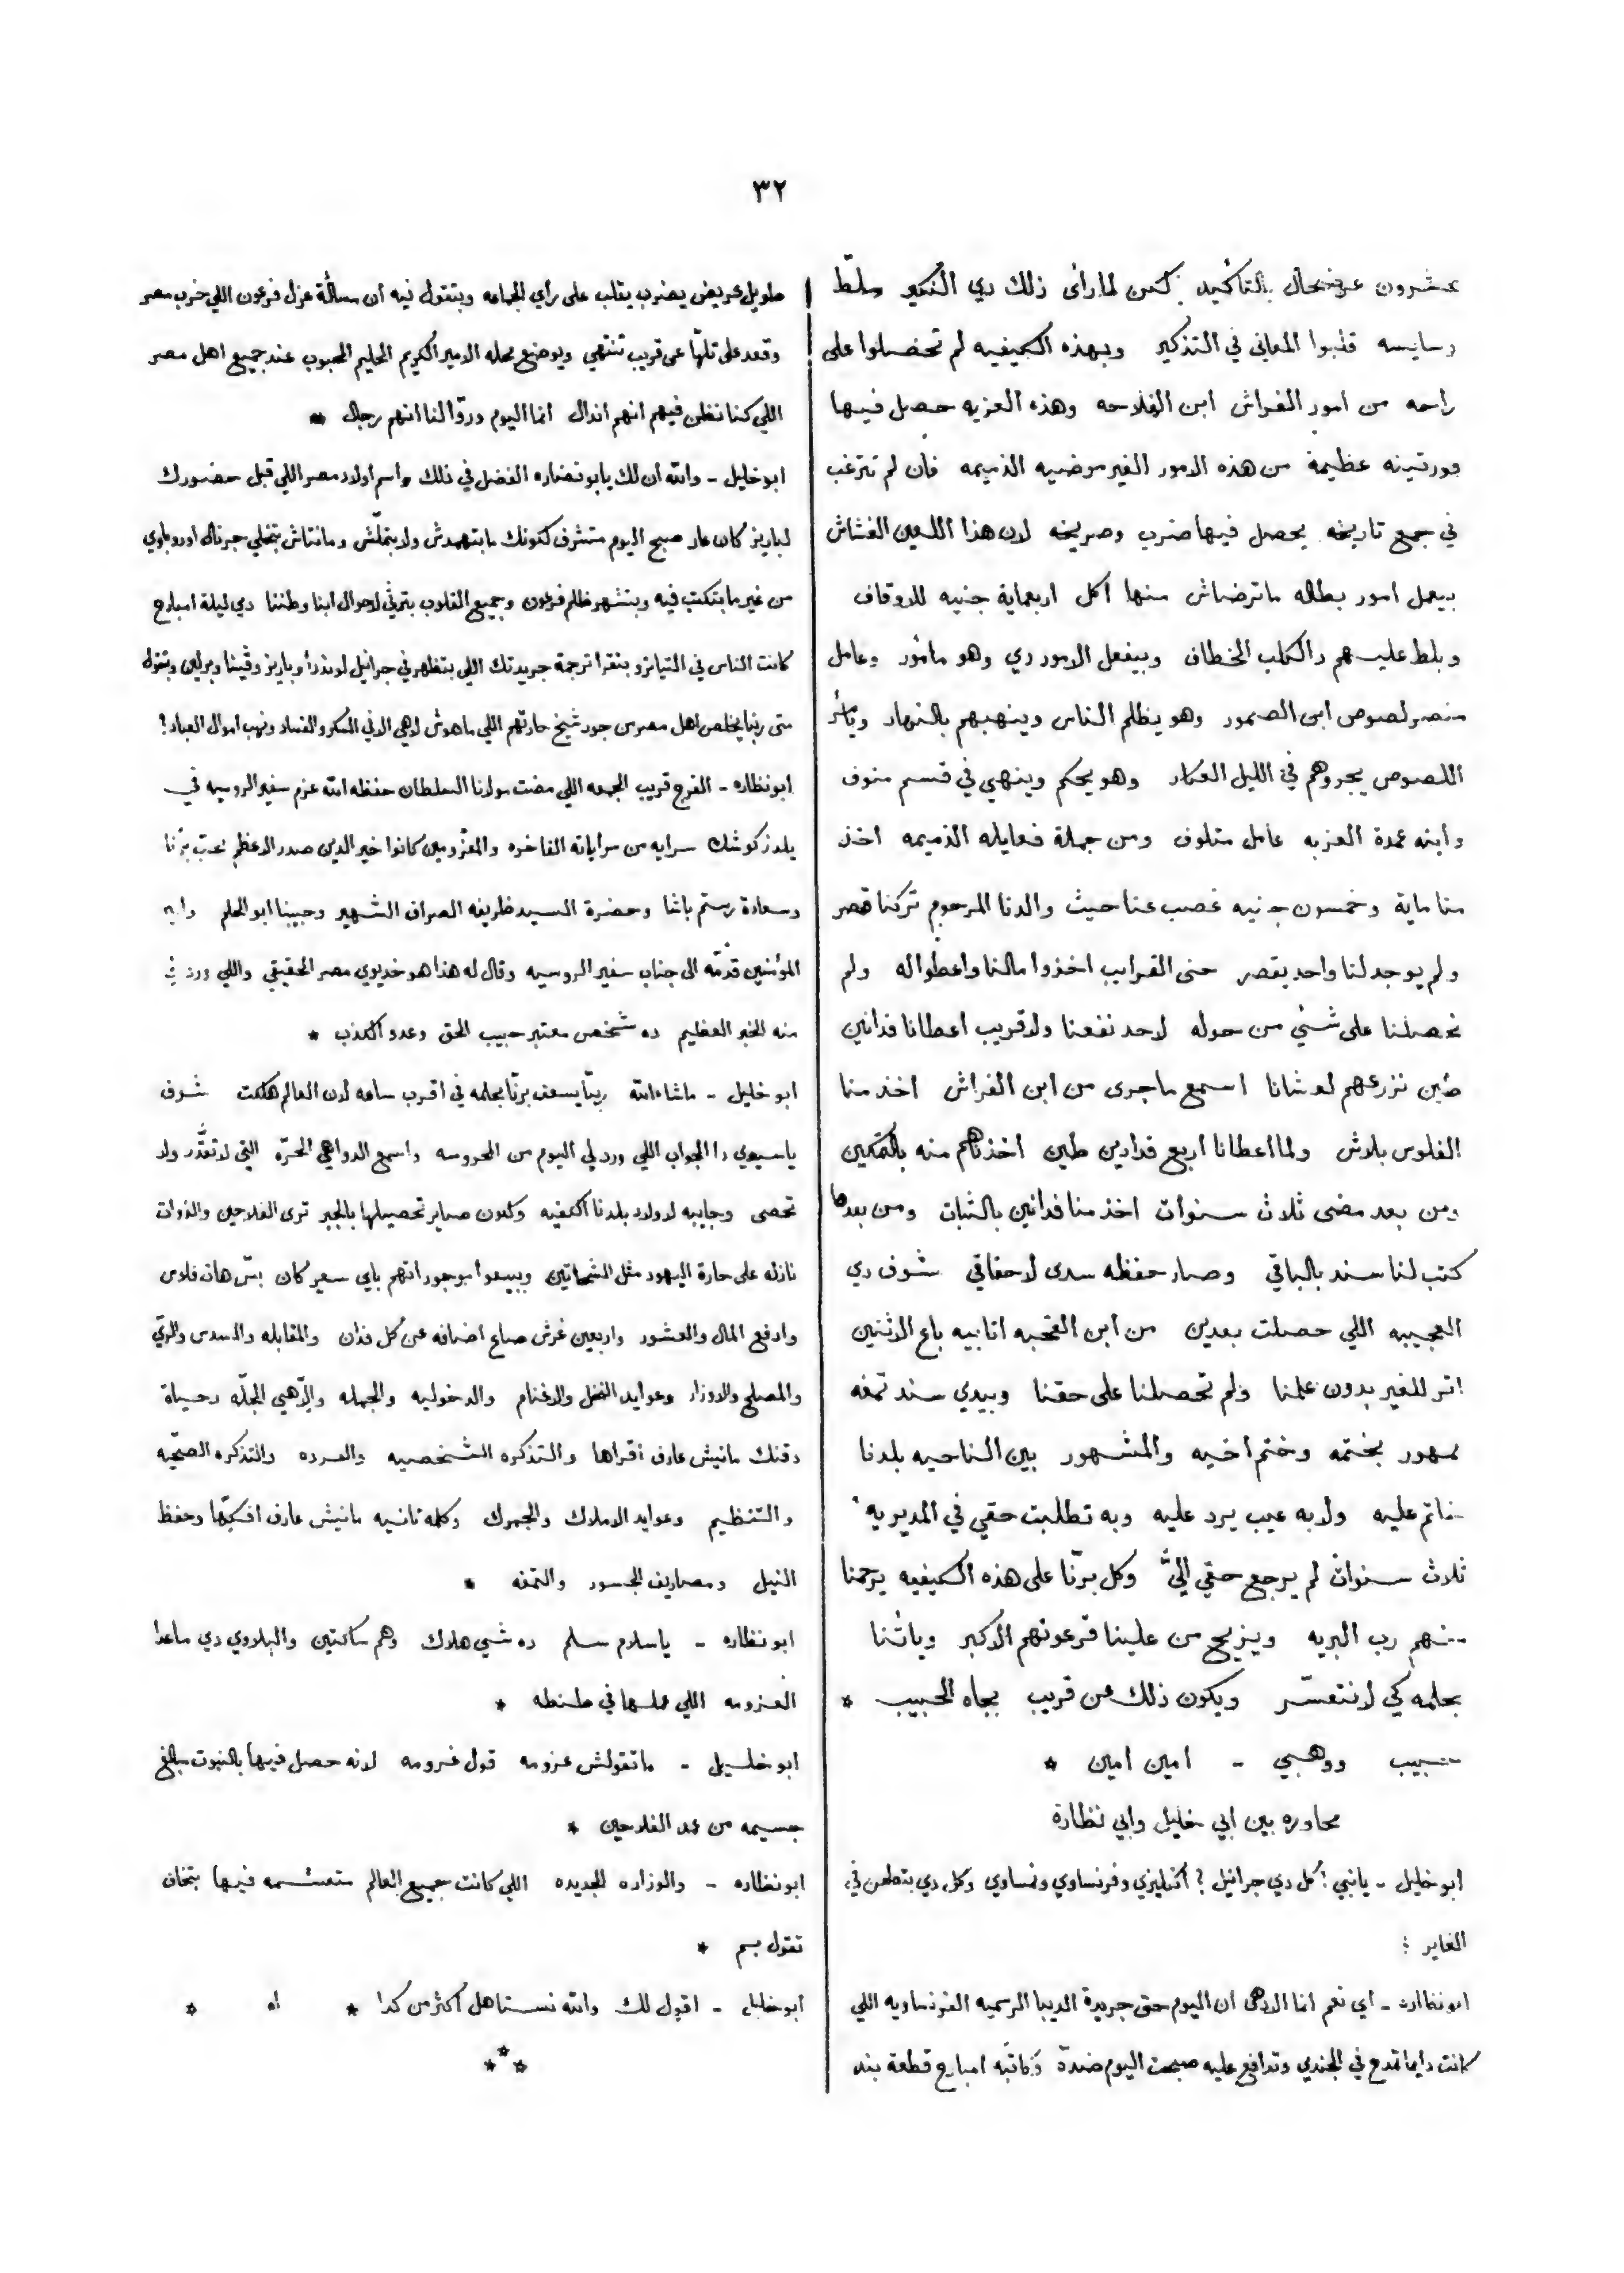 ٣٢
عشرون عرضحال بالتأكيد لكن لما رائ ذلك دي النكير سلّط
وسايسه قلبوا المعاني في التذكير وبهذه الكيفيه لم تحصلوا على
راحه من امور الفراش ابن الفلاحه وهذه العزبه حصل فيها
عظيمة من هذه الامور الغير مرضيه الذميمه فأن لم تترغب
في جمع تاريخه يحصل فيها ضرب وصريخه لان هذا اللعين الغشاش
بيعمل امور بطاله ماترضاش منها اكل اربعماية جنيه للاوقاف
وبلط عليهم دالكلب الخطاف وبيفعل الامور دي وهو مأمور وعامل
منصر لصوص ابن الصمور وهو يظلم الناس وينهبهم بالنهار ويأمر
اللصوص يجروهم في الليل العكار وهو يحكم وينهي في قسم منوف
وأبنه عمدة العزبه عامل متلوف ومن جملة فعايله الذميمه اخذ
منا ماية وخمسون جنيه غصب عنا حيث والدنا المرحوم تركنا قصر
ولم يوجد لنا واحد يقصر حتى القرايب اخذوا مالنا واعطواله ولم
تحصلنا على شئي من حوله لاحد نفعنا ولا قريب اعطانا فدانين
طين نزرعهم لعشانا اسمع ماجرى من ابن الفراش اخذ منا
الفلوس بلاش ولما اعطانا اربع فدادين طين اخذناهم منه بالتمكين
ومن بعد مضى ثلاث سنوات اخذ منا فدانين بالثبات ومن بعدها
كتب لنا سند بالباقي وصار حفظه سدى لاحقاقي شوف دي
العجيبه اللي حصلت بعدين من ابن القحبه اتابيه باع الاثنين
اتر للغير بدون علمنا ولم تحصلنا على حقنا وبيدي سند تمغه
ممهور بختمه وختم اخيه والمشهور بين الناحيه بلدنا
خاتم عليه ولابه عيب يرد عليه وبه تطلبت حقي في المديريه
ثلاث سنوات لم يرجع حقي اليَّ وكل برّنا على هذه الكيفيه يرحمنا
منهم رب البريه ويزيح من علينا فرعونهم الاكبر ويأتنا
بحلمه كي لانتعسّر ويكون ذلك عن قريب بجاه الحبيب *
حبيب ووهبي - امين امين *
محاوره بين ابي خليل وابي نظارة
ابو خليل - يانبي ! كل دي جرانيل ? أنكليزي وفرنساوي ونمساوي وكل دي بتطعن في
الغاير :
ابو نظاره - اي نعم انما الادهى ان اليوم حتى جريدة الديبا الرسميه الفرنساويه اللي
كانت دايما تمدح في الجندي وتدافع عليه صبحت اليوم ضدّه وكاتبه امبارح قطعة بند
طويل عريض يضرب يقلب على راي الجماعه وبتقول فيه ان مسألة عزل فرعون اللي خرب مصر
وقعد على تلّها عن قريب تنتهي ويوضع محله الامير الكريم الحليم المحبوب عند جميع اهل مصر
اللي كنا نظن فيهم انهم اندال انما اليوم وروّا لنا انهم رجال *
ابو خليل - والله ان لك يابو نضاره الفضل في ذلك واسم اولاد مصر اللي قبل حضورك
لباريز كان عار صبح اليوم متشرف لكونك مابتهمدش ولابتملّش ومانتاش بتخلي جرنال اوروباوي
من غير مابتكتب فيه وبتشهر ظلم فرعون وجميع القلوب بترثي لاحوال ابنا وطننا دي ليلة امبارح
كانت الناس في التياترو بتقرا ترجمة جريدتك اللي بتظهر في جرانيل لوندرا وباريز وڤينا وبرلين وبتقول
متى ربنا يخلص اهل مصر من جور شيخ حارتهم اللي ماهوش لاهي الا في السكر والفساد ونهب اموال العباد ؟
ابو نظاره - الفرج قريب الجمعه اللي مضت مولانا السلطان حفظه الله عزم سفير الروسيه في
يلدز كوشك سرايه من سراياته الفاخره والمعزومين كانوا خير الدين صدر الاعظم محب برّنا
وسعادة رستم باشا وحضرة السيد ظريفه الصراف الشهير وحبيبنا ابو الحلم
المؤمنين قدّمه الى جناب سفير الروسيه وقال له هذا هو خديوي مصر الحقيقي واللي ورد لي
منه الخبر العظيم ده شخص معتبر حبيب الحق وعدو الكذب *
ابو خليل - ماشاء الله ربنا يسعف برّنا بحلمه في اقرب ساعه لان العالم هلكت شوف
ياسيدي دا الجواب اللي ورد لي اليوم من المحروسه واسمع الدواهي الحرّه التي لاتقدّر ولا
تحصى وجايبه لاولاد بلدنا الكفيه وكلون صاير تحصيلها بالجبر ترى الفلاحين والذوات
نازله على حارة اليهود مثل الشحاتين ويبيعوا موجوداتهم باي سعر كان بسّ هات فلوس
وادفع المال والعشور واربعين غرش صاغ اضافه عن كل فدان والمقابله والسدس والريّ
والمصلح والاوزار وعوايد النخل والاغنام والدخوليه والجمله والاّهمي الجلّه وحياة
دقنك مانيش عارف أقراها والتذكره الشخصيه والفرده والتذكره الصحّيه
والتنظيم وعوايد الاملاك والجمرك وكلمه تانيه مانيش عارف افكّها وحفظ
النيل ومصاريف الجسور والتمغه *
ابو نظاره - ياسلام سلم ده شي هلاك وهم ساكتين والبلاوي دي ماعدا
العزومه اللي عملها في طنطه *
ابو خليل - ماتقولش عزومه قول غرومه لانه حصل فيها بالنبوت مبالغ
جسيمه من عمد الفلاحين *
ابو نظاره - والوزاره الجديده اللي كانت جميع العالم متعشمه فيها بتخاف
تقول بم *
ابو خليل - اقول لك والله نستاهل أكثر من كدا * اه *
***